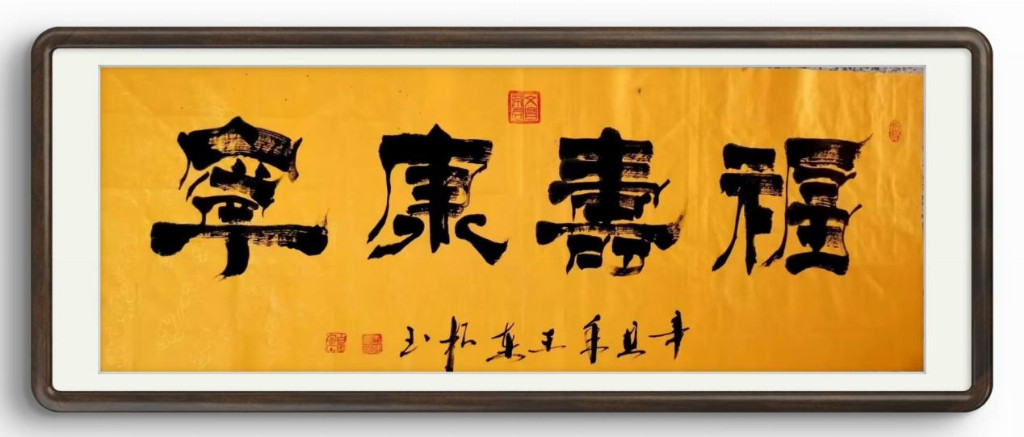 福壽康寧
辛丑年王東书